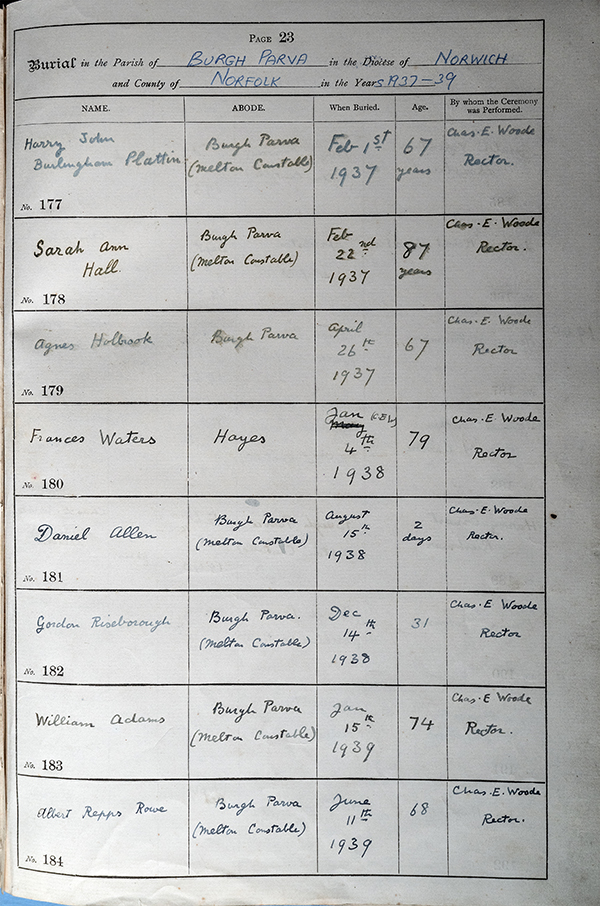 PAGE 23
Burial in the Parish of BURGH PARVA in the Diocese of NORWICH
and County of NORFOLK in the Years 1937–39
NAME. ABODE. When Buried. Age. By whom the Ceremony was Performed.
Harry John
Burlingham Plattin
No. 177
Burgh Parva
(Melton Constable)
Feb 1st
1937
67
years
Chas. E. Woode
Rector.
Sarah Ann
Hall.
No. 178
Burgh Parva
(Melton Constable)
Feb
22nd
1937
87
years
Chas. E. Woode
Rector.
Agnes Holbrook
No. 179
Burgh Parva
April
26th
1937
67
Chas. E. Woode
Rector
Frances Waters
No. 180
Hayes
Jan
4th
1938
79
Chas. E. Woode
Rector
Daniel Allen
No. 181
Burgh Parva
(Melton Constable)
August
15th
1938
2
days
Chas. E. Woode
Rector.
Gordon Riseborough
No. 182
Burgh Parva.
(Melton Constable)
Dec
14th
1938
31
Chas. E Woode
Rector
William Adams
No. 183
Burgh Parva
(Melton Constable)
Jan
15th
1939
74
Chas. E Woode
Rector.
Albert Repps Rowe
No. 184
Burgh Parva
(Melton Constable)
June
11th
1939
68
Chas. E. Woode
Rector.